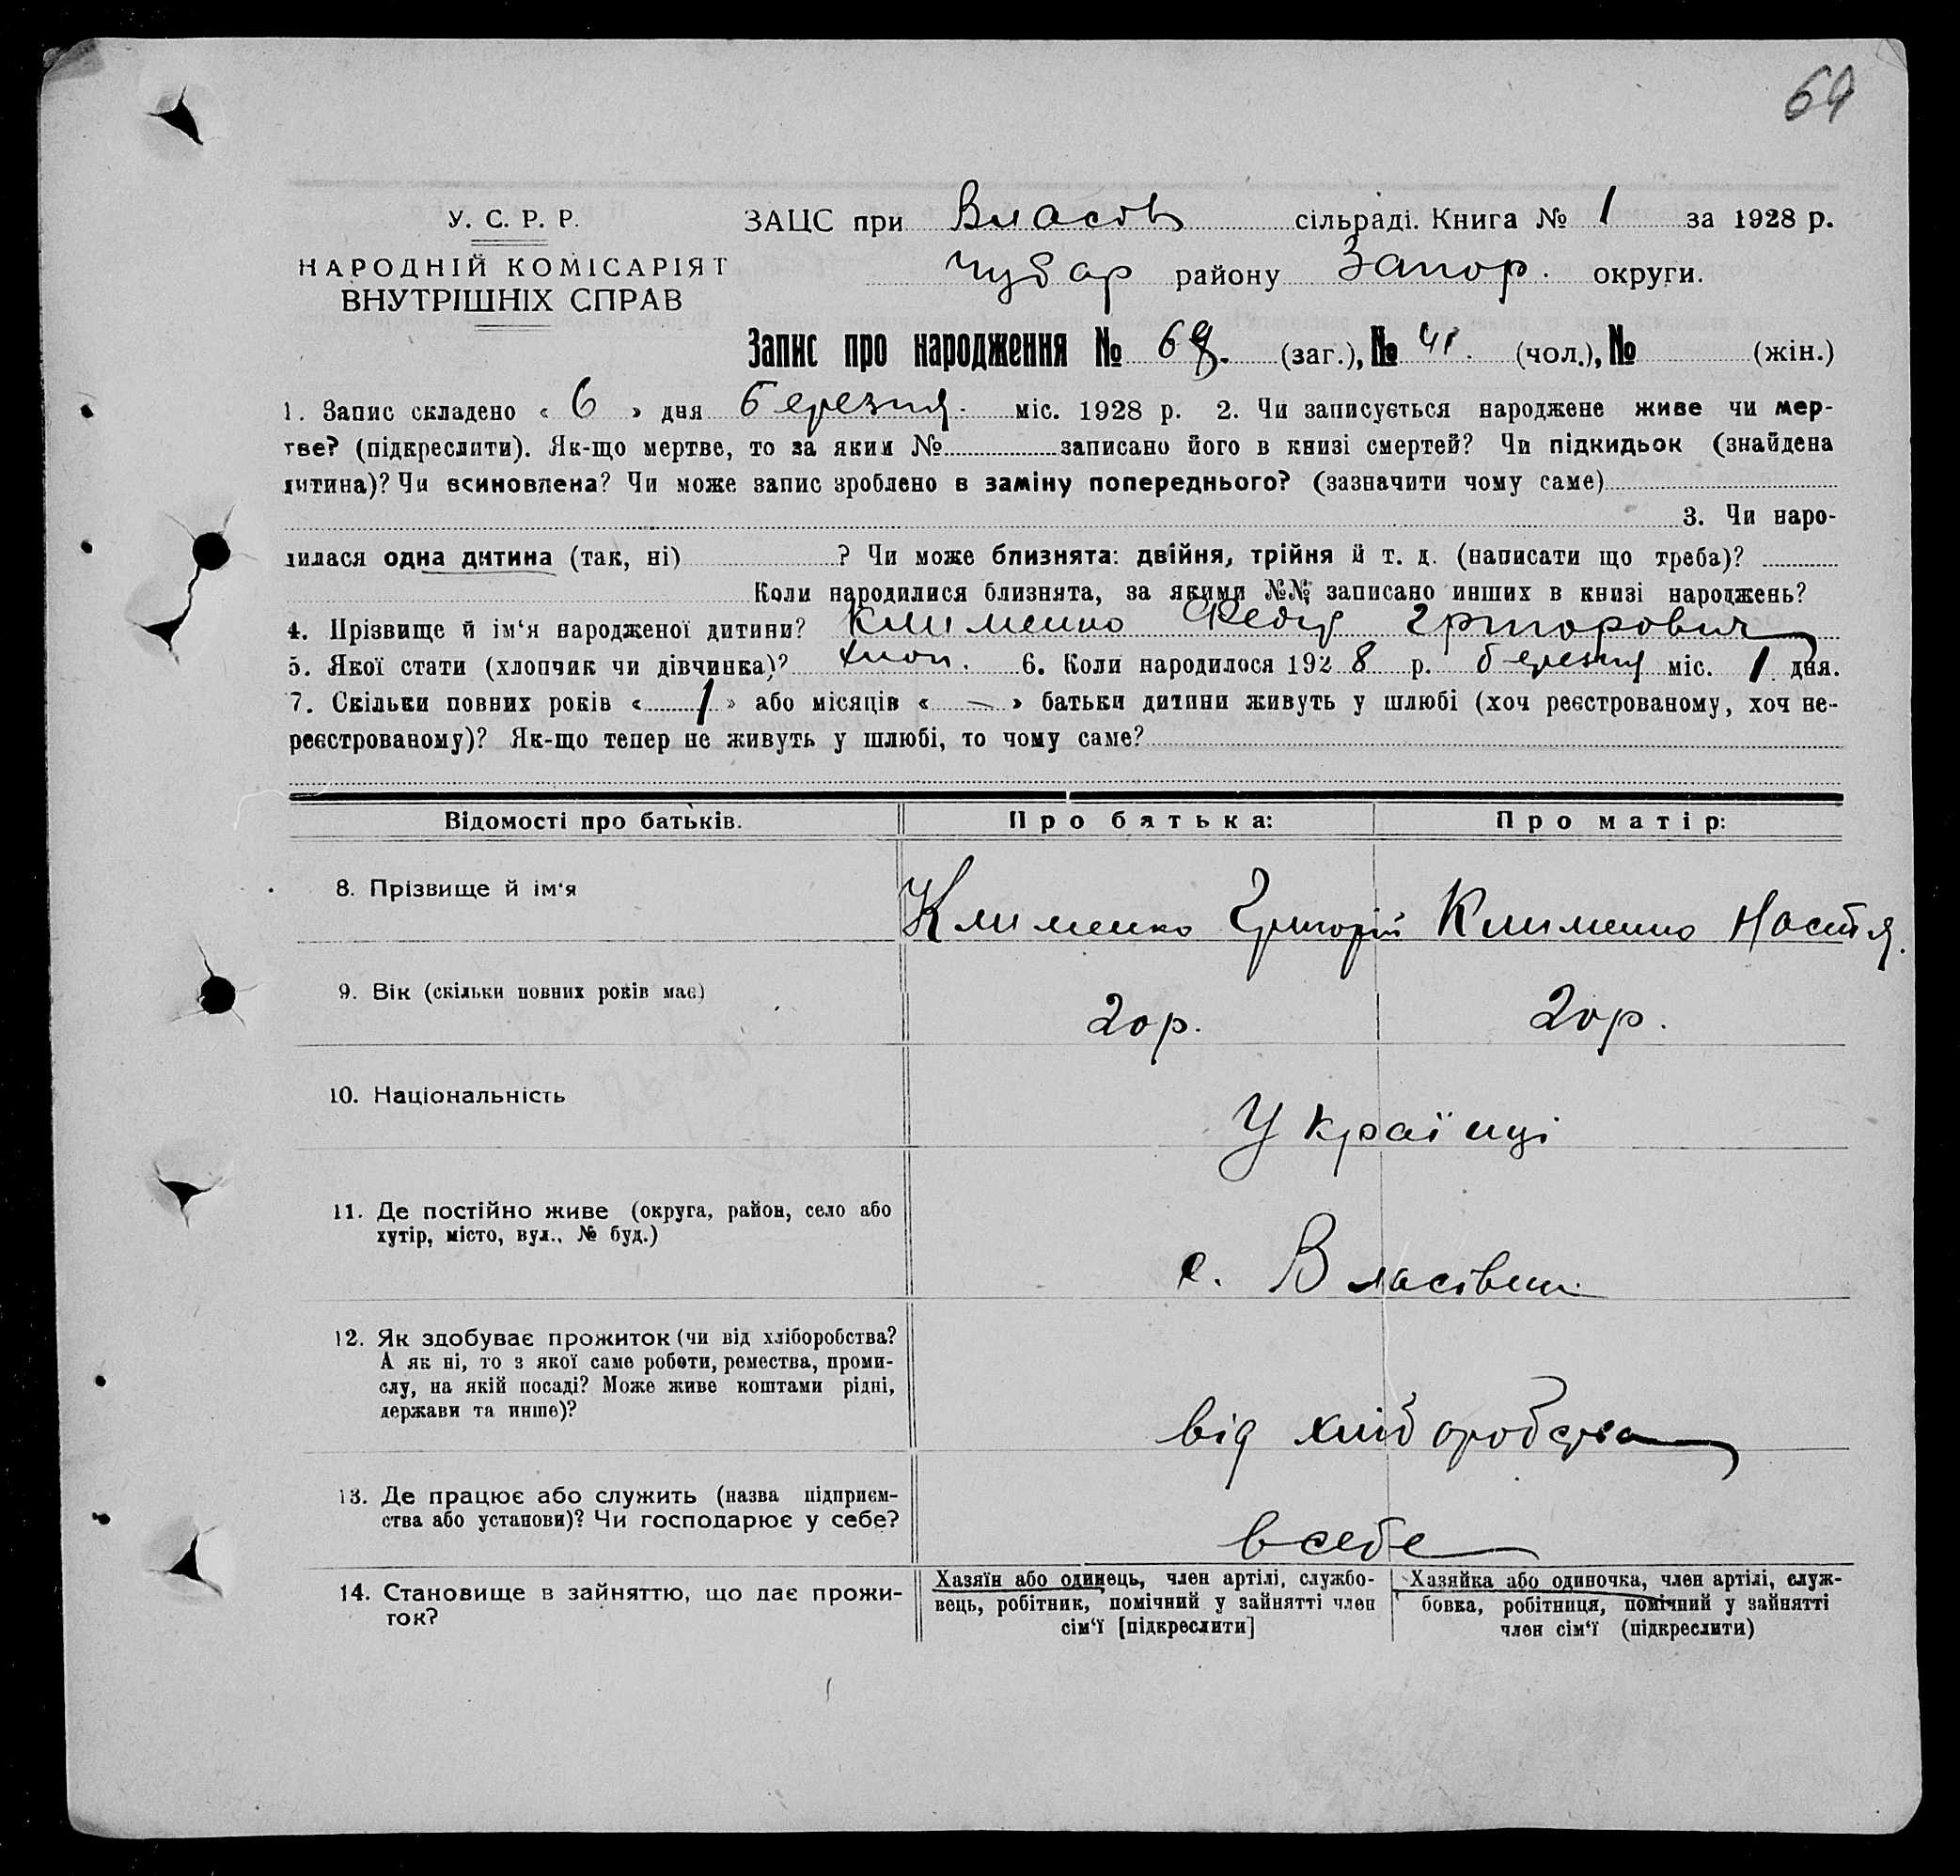 69
У. С. Р. Р.
НАРОДНІЙ КОМІСАРІЯТ
ВНУТРІШНІХ СПРАВ
ЗАЦС при Власов сільраді. Книга № 1 за 1928 р.
Чубар району Запор. округи.
Запис про народження № 69. (заг.), № 41. (чол.), № (жін.)
1. Запис складено « 6 » дня березня. міс. 1928 р. 2. Чи записується народжене живе чи мер-
тве? (підкреслити). Як-що мертве, то за яким № записано його в книзі смертей? Чи підкидьок (знайдена
дитина)? Чи всиновлена? Чи може запис зроблено в заміну попереднього? (зазначити чому саме)
3. Чи наро-
дилася одна дитина (так, ні) ? Чи може близнята: двійня, трійня й т. д. (написати що треба)?
Коли народилися близнята, за якими №№ записано инших в книзі народжень?
4. Прізвище й ім‘я народженої дитини? Клименко Федір Григорович
5. Якої стати (хлопчик чи дівчинка)? хлоп. 6. Коли народилося 1928 р. березня міс. 1 дня.
7. Скільки повних років « 1 » або місяців « — » батьки дитини живуть у шлюбі (хоч реєстрованому, хоч не-
реєстрованому)? Як-що тепер не живуть у шлюбі, то чому саме?
Відомості про батьків. Про батька: Про матір:
8. Прізвище й ім‘я Клименко Григорій Клименко Настя.
9. Вік (скільки повних років має) 20 р. 20 р.
10. Національність Українці
11. Де постійно живе (округа, район, село або
хутір, місто, вул., № буд.)
с. Власівки
12. Як здобуває прожиток (чи від хліборобства?
А як ні, то з якої саме роботи, ремества, проми-
слу, на якій посаді? Може живе коштами рідні,
держави та инше)?
від хліборобства
13. Де працює або служить (назва підприєм-
ства або установи)? Чи господарює у себе?
в себе
14. Становище в зайняттю, що дає прожи-
ток?
Хазяїн або одинець, член артілі, службо-
вець, робітник, помічний у зайнятті член
сім‘ї [підкреслити]
Хазяйка або одиночка, член артілі, служ-
бовка, робітниця, помічний у зайнятті
член сім‘ї (підкреслити)